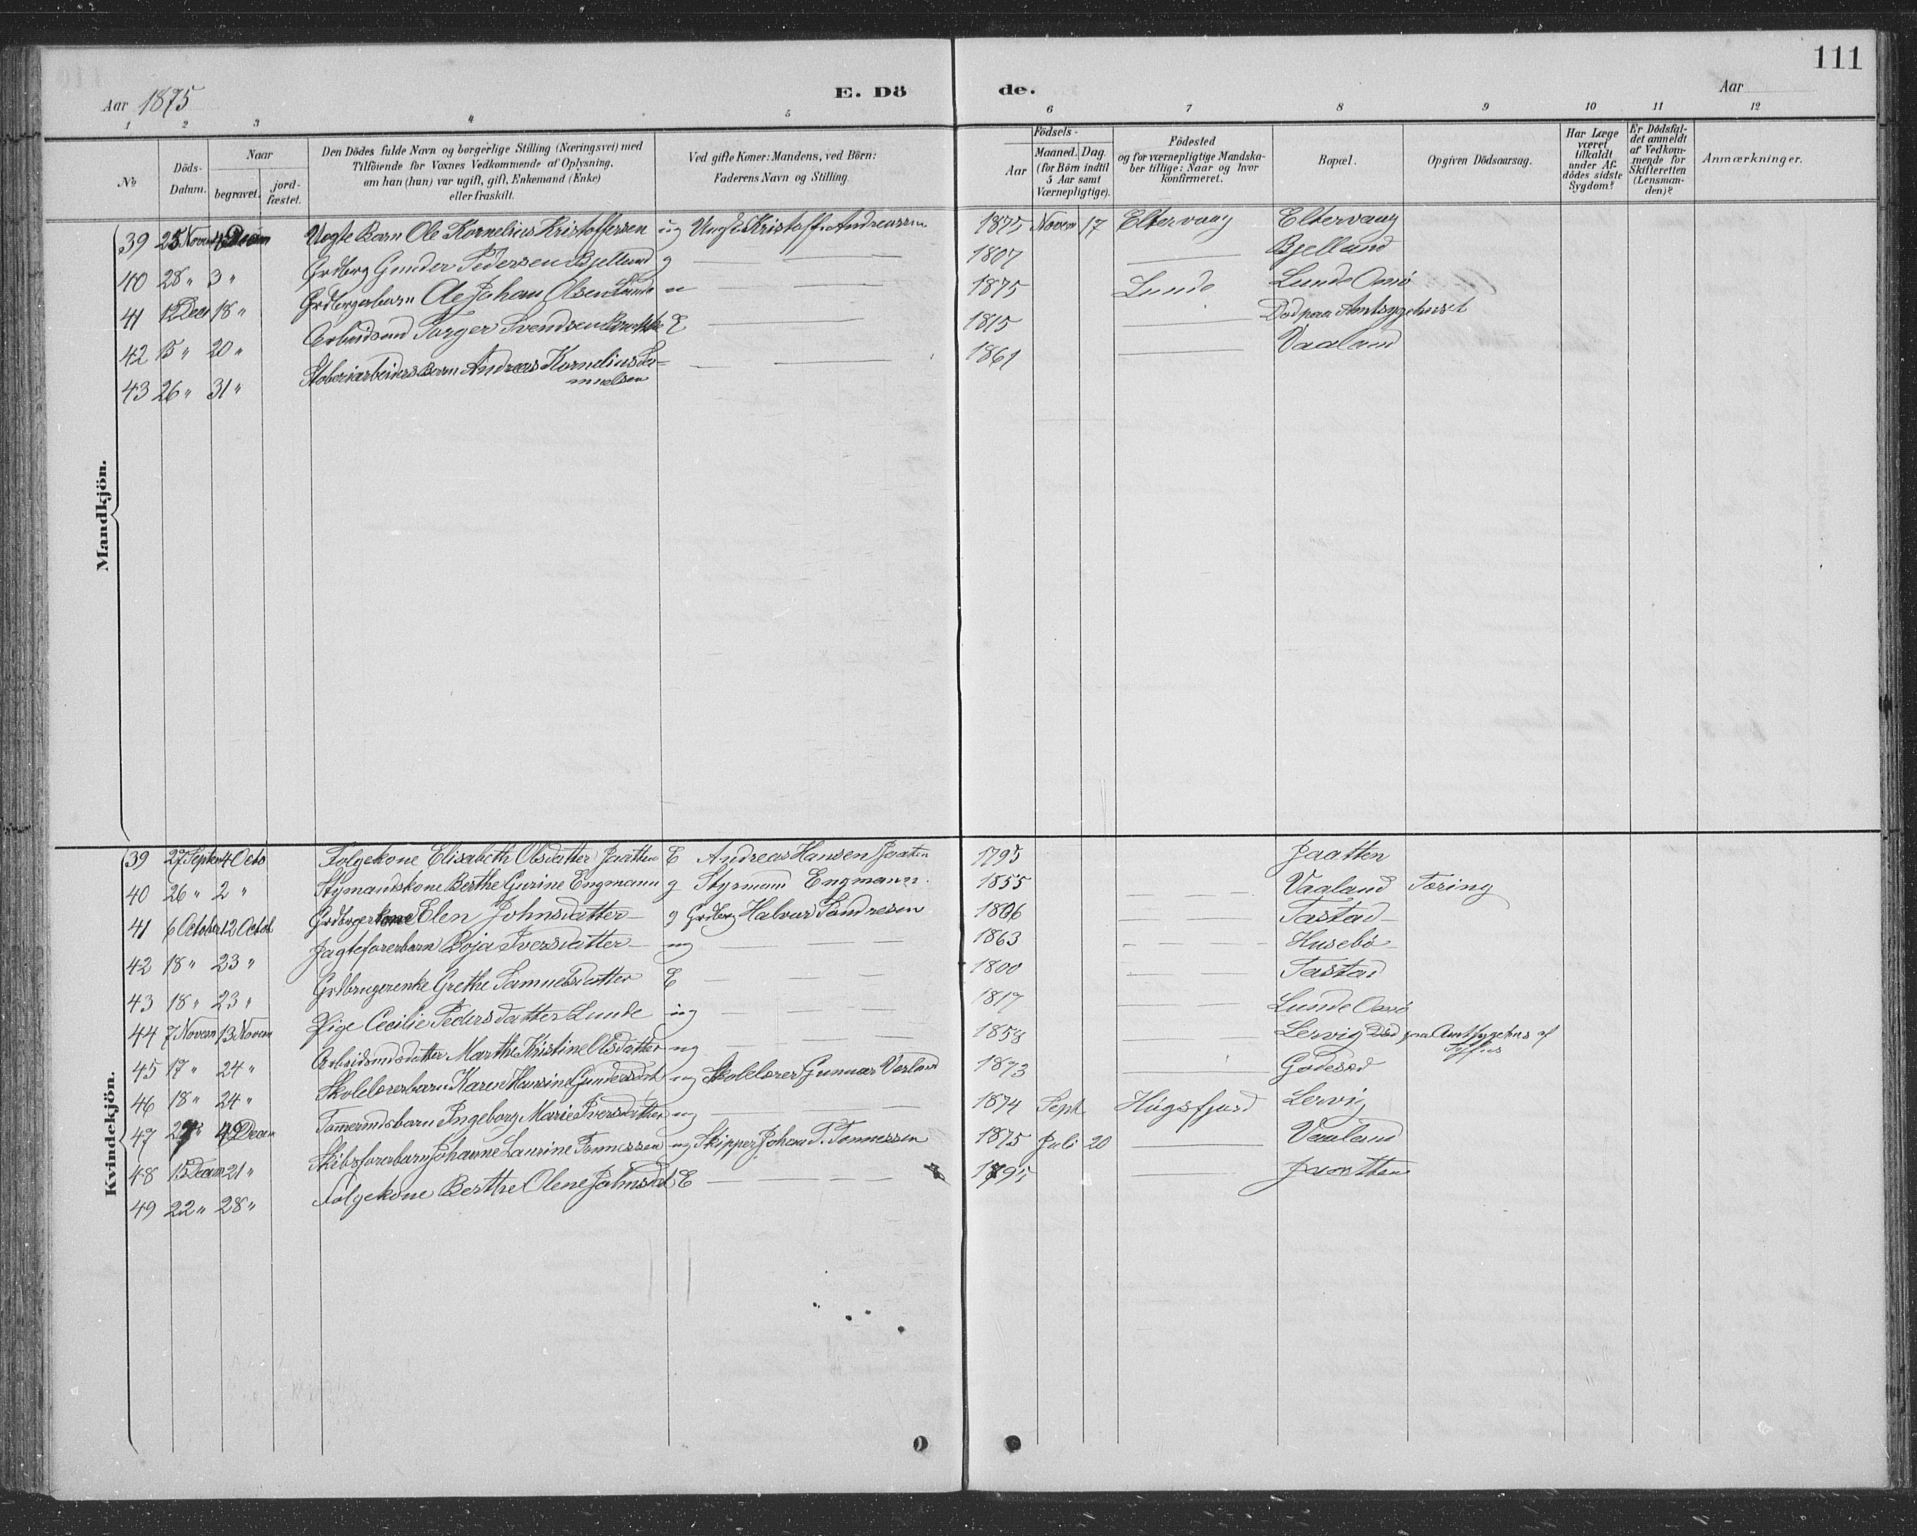 111
Aar 1875
E. Dö
de.
Aar
1 2 3 4 5 6 7 8 9 10 11 12
No
Döds-Datum.
Naar
begravet. jord-fæstet.
Den Dödes fulde Navn og borgerlige Stilling (Næringsvei) med
Tilföiende for Voxnes Vedkommende af Oplysning,
om han (hun) var ugift, gift, Enkemand (Enke)
eller fraskilt.
Ved gifte Koner: Mandens, ved Börn:
Faderens Navn og Stilling.
Födsels-
Aar
Maaned. Dag.
(for Börn indtil
5 Aar samt
Værnepligtige).
Födested
og for værnepligtige Mandska-
ber tillige: Naar og hvor
konfirmeret.
Bopæl.
Opgiven Dödsaarsag.
Har Læge
været
tilkaldt
under Af-
dödes sidste
Sygdom?
Er Dödsfal-
det anmeldt
af Vedkom-
mende for
Skifteretten
(Lensman-
den)?
Anmærkninger.
Mandkjön.
39 25 Novem 4 Decem Ole Kornelius Kristoffersen ug Kristoff. Andreassen 1875 Novem 17 Eltervaag Eltervaag
40 28 " 3 " Grdbrg Gunder Pedersen Bjelland g 1807 Bjelland
41 12 Dec 18 " Grdbrgerbarn Ole Johan Olsen Lunde u 1875 Lunde Lunde
42 15 " 20 " Arbeidsmd Torger Svendsen E 1815 Död paa Amtsygehuset
43 26 " 31 " Andreas Kornelius 1861 Vaaland
Kvindekjön.
39 27 Septem 4 Octo Folgekone Elisabeth Olsdatter Jaatten E Andreas Hansen Jaatten 1795 Jaatten
40 26 " 2 " Styrmandskone Berthe Gurine Engmann g Styrmand Engmann. 1855 Vaaland Tæring
41 6 October 12 Octob Grdbrgerkone Elen Johnsdatter g Grdbrg Halvor Sandresen 1806 Tastad
42 18 " 23 " Jagteforerbarn Boja Iversdatter ug 1863 Husebö
43 18 " 23 " Grdbrugerenke Grethe Samuelsdatter E 1800 Tastad
44 7 Novem 13 Novem Pige Cecilie Pedersdatter Lunde ug 1817 Lunde
45 17 " 24 " Arbeidsmdsdatter Marthe Kristine Olsdatter ug 1853 Lervig Död paa Amtsygehus af
Tyfus
46 18 " 24 " Skolelærerbarn Karen Hansine Gundersdat ug Skolelærer Gunnar Varland 1873 Godesed
47 27 " 4 Decem Tømermdsbarn Ingeborg Marie Iversdatter ug 1874 Sept Högsfjord Lervig
48 15 Decem 21 " Skibsforerbarn Johanne Laurine Tonnessen ug Skipper Johan T. Tonnessen 1875 Juli 20 Vaaland
49 22 " 28 " Folgekone Berthe Olene Johnsdat E 1795 Jaatten